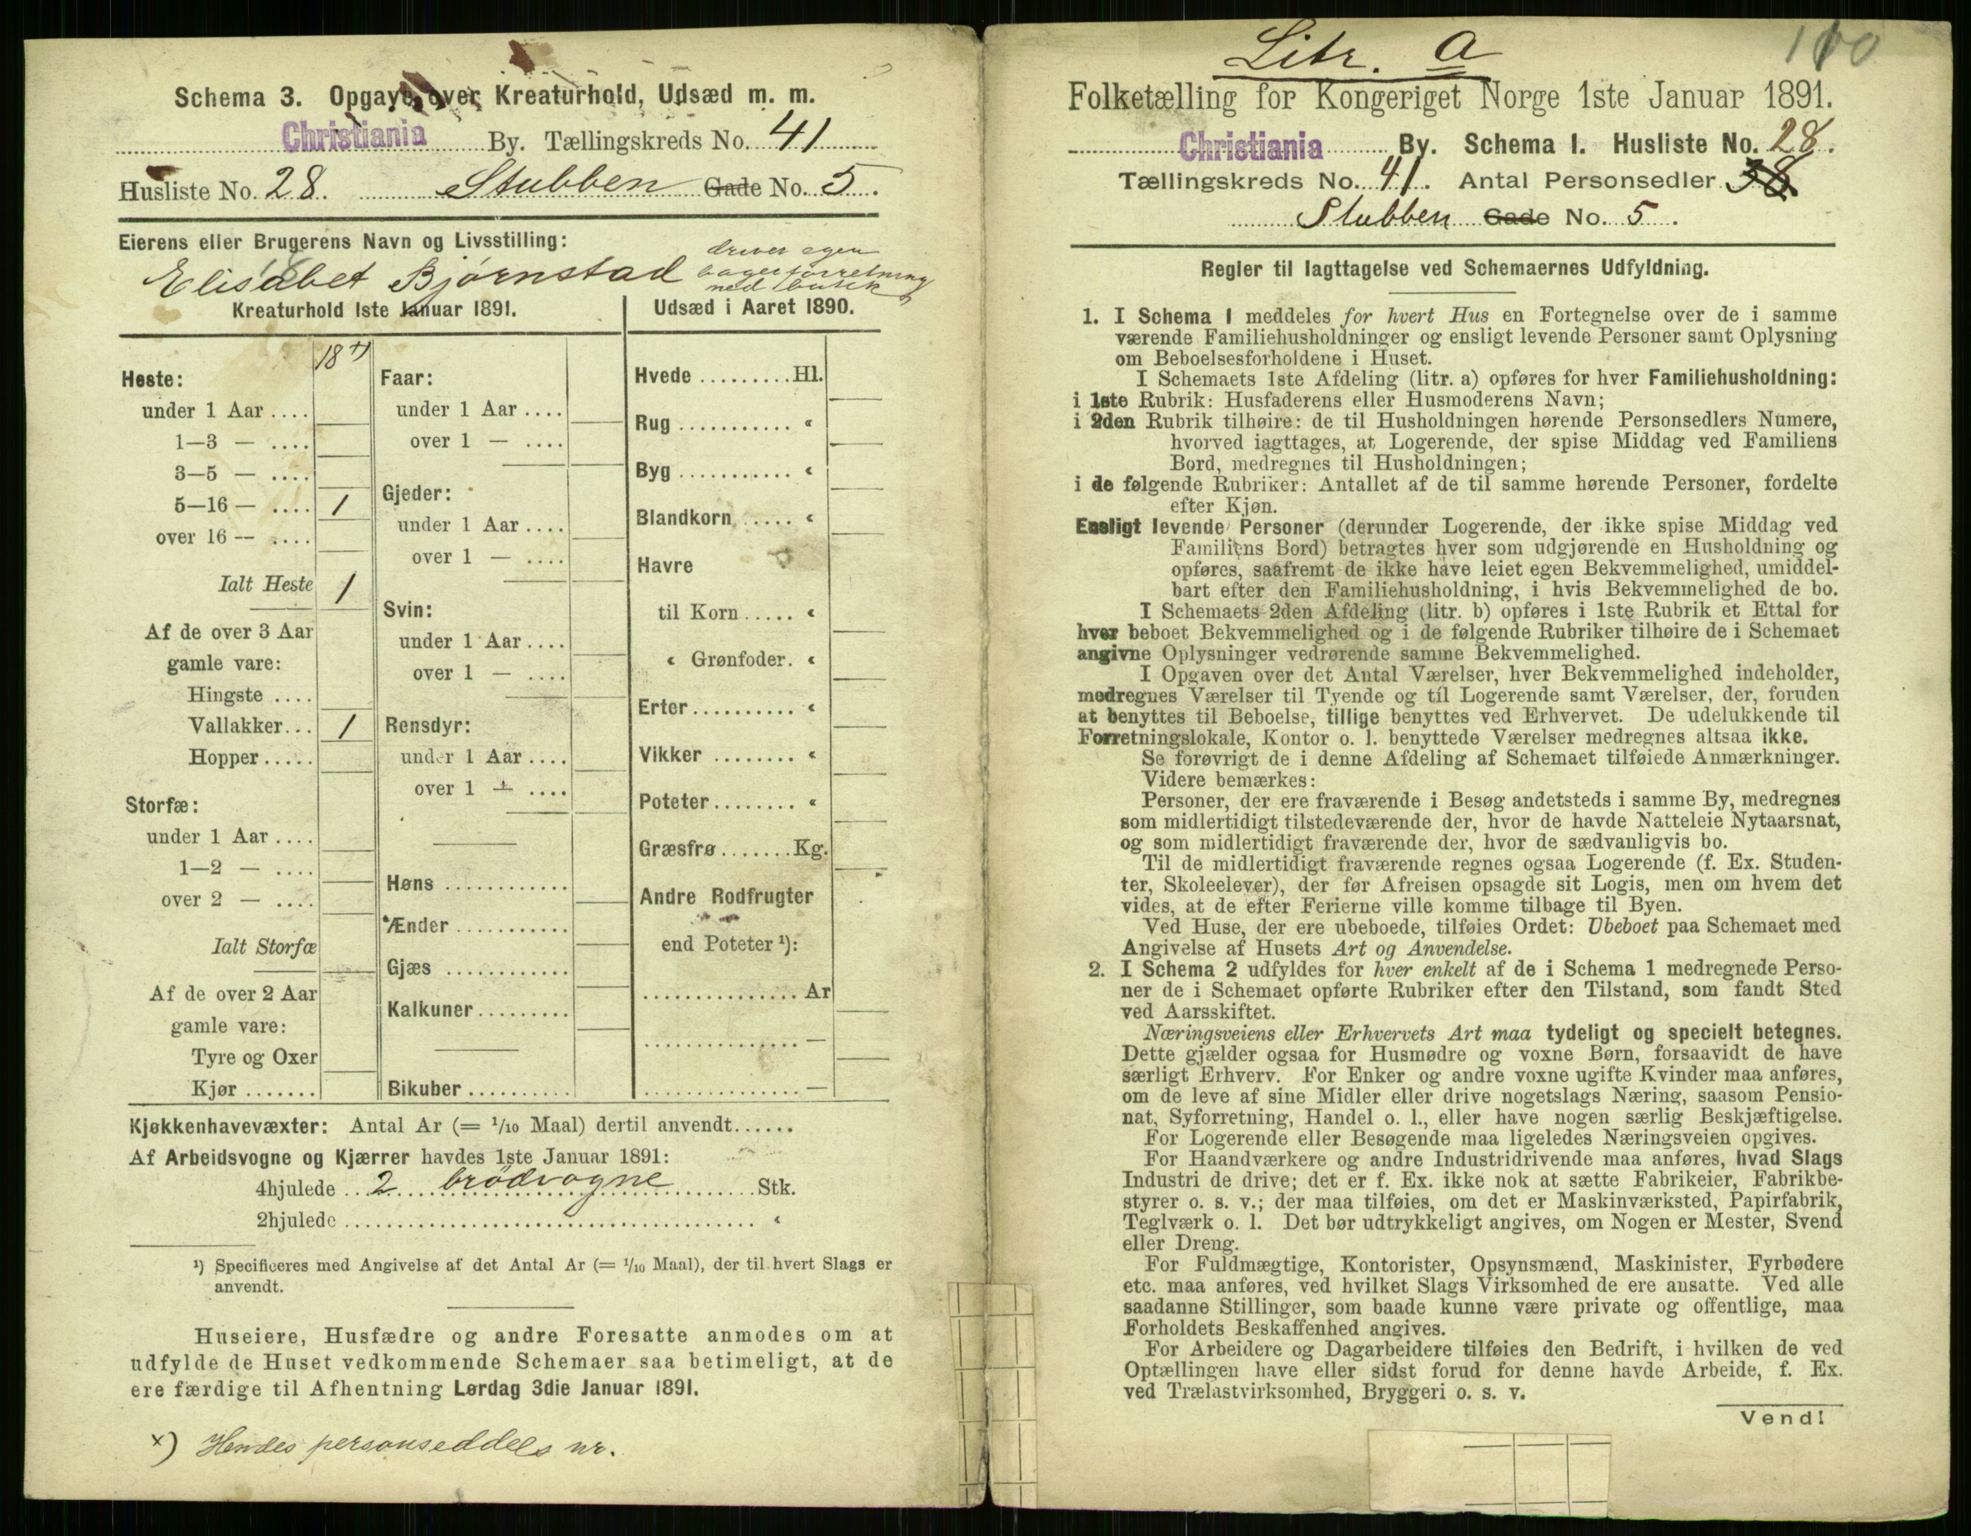 Schema 3. Opgave over Kreaturhold, Udsæd m. m.
Christiania By. Tællingskreds No. 41
Husliste No. 28. Stubben Gade No. 5.
Eierens eller Brugerens Navn og Livsstilling:
Elisabet Bjørnstad
driver egen
bagerforretning
med butik
Kreaturhold 1ste Januar 1891.
18 x)
Heste:
under 1 Aar ....
1—3 — ....
3—5 — ....
5—16 — .... 1
over 16 — ....
Ialt Heste 1
Af de over 3 Aar
gamle vare:
Hingste ....
Vallakker... 1
Hopper .....
Storfæ:
under 1 Aar ....
1—2 — ....
over 2 — ....
Ialt Storfæ
Af de over 2 Aar
gamle vare:
Tyre og Oxer
Kjør .......
Faar:
under 1 Aar ....
over 1 — ....
Gjeder:
under 1 Aar ....
over 1 — ....
Svin:
under 1 Aar ....
over 1 — ....
Rensdyr:
under 1 Aar ....
over 1 — ....
Høns ............
Ænder ...........
Gjæs ............
Kalkuner.........
Bikuber ..........
Udsæd i Aaret 1890.
Hvede .........Hl.
Rug ........... «
Byg ........... «
Blandkorn ..... «
Havre
til Korn ..... «
« Grønfoder. «
Erter.......... «
Vikker ........ «
Poteter........ «
Græsfrø .......Kg.
Andre Rodfrugter
end Poteter ¹):
............... Ar
............... —
............... —
Kjøkkenhavevæxter: Antal Ar (= 1/10 Maal) dertil anvendt......
Af Arbeidsvogne og Kjærrer havdes 1ste Januar 1891:
4hjulede .. 2 brödvogne ......Stk.
2hjulede ................................... «
¹) Specificeres med Angivelse af det Antal Ar (= 1/10 Maal), der til hvert Slags er
anvendt.
Huseiere, Husfædre og andre Foresatte anmodes om at
udfylde de Huset vedkommende Schemaer saa betimeligt, at de
ere færdige til Afhentning Lørdag 3die Januar 1891.
x) Hendes personseddels nr.
Litr. a
Folketælling for Kongeriget Norge 1ste Januar 1891.
Christiania By. Schema I. Husliste No. 28.
Tællingskreds No. 41. Antal Personsedler
Stubben Gade No. 5.
Regler til Iagttagelse ved Schemaernes Udfyldning.
1. I Schema I meddeles for hvert Hus en Fortegnelse over de i samme
værende Familiehusholdninger og ensligt levende Personer samt Oplysning
om Beboelsesforholdene i Huset.
I Schemaets 1ste Afdeling (litr. a) opføres for hver Familiehusholdning:
i 1ste Rubrik: Husfaderens eller Husmoderens Navn;
i 2den Rubrik tilhøire: de til Husholdningen hørende Personsedlers Numere,
hvorved iagttages, at Logerende, der spise Middag ved Familiens
Bord, medregnes til Husholdningen;
i de følgende Rubriker: Antallet af de til samme hørende Personer, fordelte
efter Kjøn.
Ensligt levende Personer (derunder Logerende, der ikke spise Middag ved
Familiens Bord) betragtes hver som udgjørende en Husholdning og
opføres, saafremt de ikke have leiet egen Bekvemmelighed, umiddel-
bart efter den Familiehusholdning, i hvis Bekvemmelighed de bo.
I Schemaets 2den Afdeling (litr. b) opføres i 1ste Rubrik et Ettal for
hver beboet Bekvemmelighed og i de følgende Rubriker tilhøire de i Schemaet
angivne Oplysninger vedrørende samme Bekvemmelighed.
I Opgaven over det Antal Værelser, hver Bekvemmelighed indeholder,
medregnes Værelser til Tyende og til Logerende samt Værelser, der, foruden
at benyttes til Beboelse, tillige benyttes ved Erhvervet. De udelukkende til
Forretningslokale, Kontor o. l. benyttede Værelser medregnes altsaa ikke.
Se forøvrigt de i denne Afdeling af Schemaet tilføiede Anmærkninger.
Videre bemærkes:
Personer, der ere fraværende i Besøg andetsteds i samme By, medregnes
som midlertidigt tilstedeværende der, hvor de havde Natteleie Nytaarsnat,
og som midlertidigt fraværende der, hvor de sædvanligvis bo.
Til de midlertidigt fraværende regnes ogsaa Logerende (f. Ex. Studen-
ter, Skoleelever), der før Afreisen opsagde sit Logis, men om hvem det
vides, at de efter Ferierne ville komme tilbage til Byen.
Ved Huse, der ere ubeboede, tilføies Ordet: Ubeboet paa Schemaet med
Angivelse af Husets Art og Anvendelse.
2. I Schema 2 udfyldes for hver enkelt af de i Schema 1 medregnede Perso-
ner de i Schemaet opførte Rubriker efter den Tilstand, som fandt Sted
ved Aarsskiftet.
Næringsveiens eller Erhvervets Art maa tydeligt og specielt betegnes.
Dette gjælder ogsaa for Husmødre og voxne Børn, forsaavidt de have
særligt Erhverv. For Enker og andre voxne ugifte Kvinder maa anføres,
om de leve af sine Midler eller drive nogetslags Næring, saasom Pensio-
nat, Syforretning, Handel o. l., eller have nogen særlig Beskjæftigelse.
For Logerende eller Besøgende maa ligeledes Næringsveien opgives.
For Haandværkere og andre Industridrivende maa anføres, hvad Slags
Industri de drive; det er f. Ex. ikke nok at sætte Fabrikeier, Fabrikbe-
styrer o. s. v.; der maa tilføies, om det er Maskinværksted, Papirfabrik,
Teglværk o. l. Det bør udtrykkeligt angives, om Nogen er Mester, Svend
eller Dreng.
For Fuldmægtige, Kontorister, Opsynsmænd, Maskinister, Fyrbødere
etc. maa anføres, ved hvilket Slags Virksomhed de ere ansatte. Ved alle
saadanne Stillinger, som baade kunne være private og offentlige, maa
Forholdets Beskaffenhed angives.
For Arbeidere og Dagarbeidere tilføies den Bedrift, i hvilken de ved
Optællingen have eller sidst forud for denne havde Arbeide, f. Ex.
ved Trælastvirksomhed, Bryggeri o. s. v.
Vend!